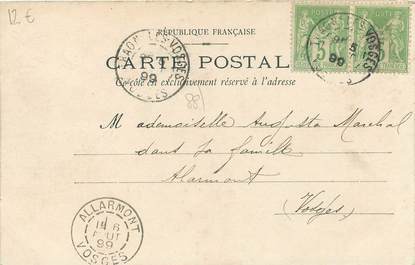 12 €
RÉPUBLIQUE FRANÇAISE
CARTE POSTAL
Ce côté est exclusivement réservé à l'adresse
VOSGES
99
VOSGES
5
99
88
Mademoiselle Augusta Marchal
dans sa famille
Alarmont
(Vosges)
ALLARMONT
6
AOUT
99
VOSGES